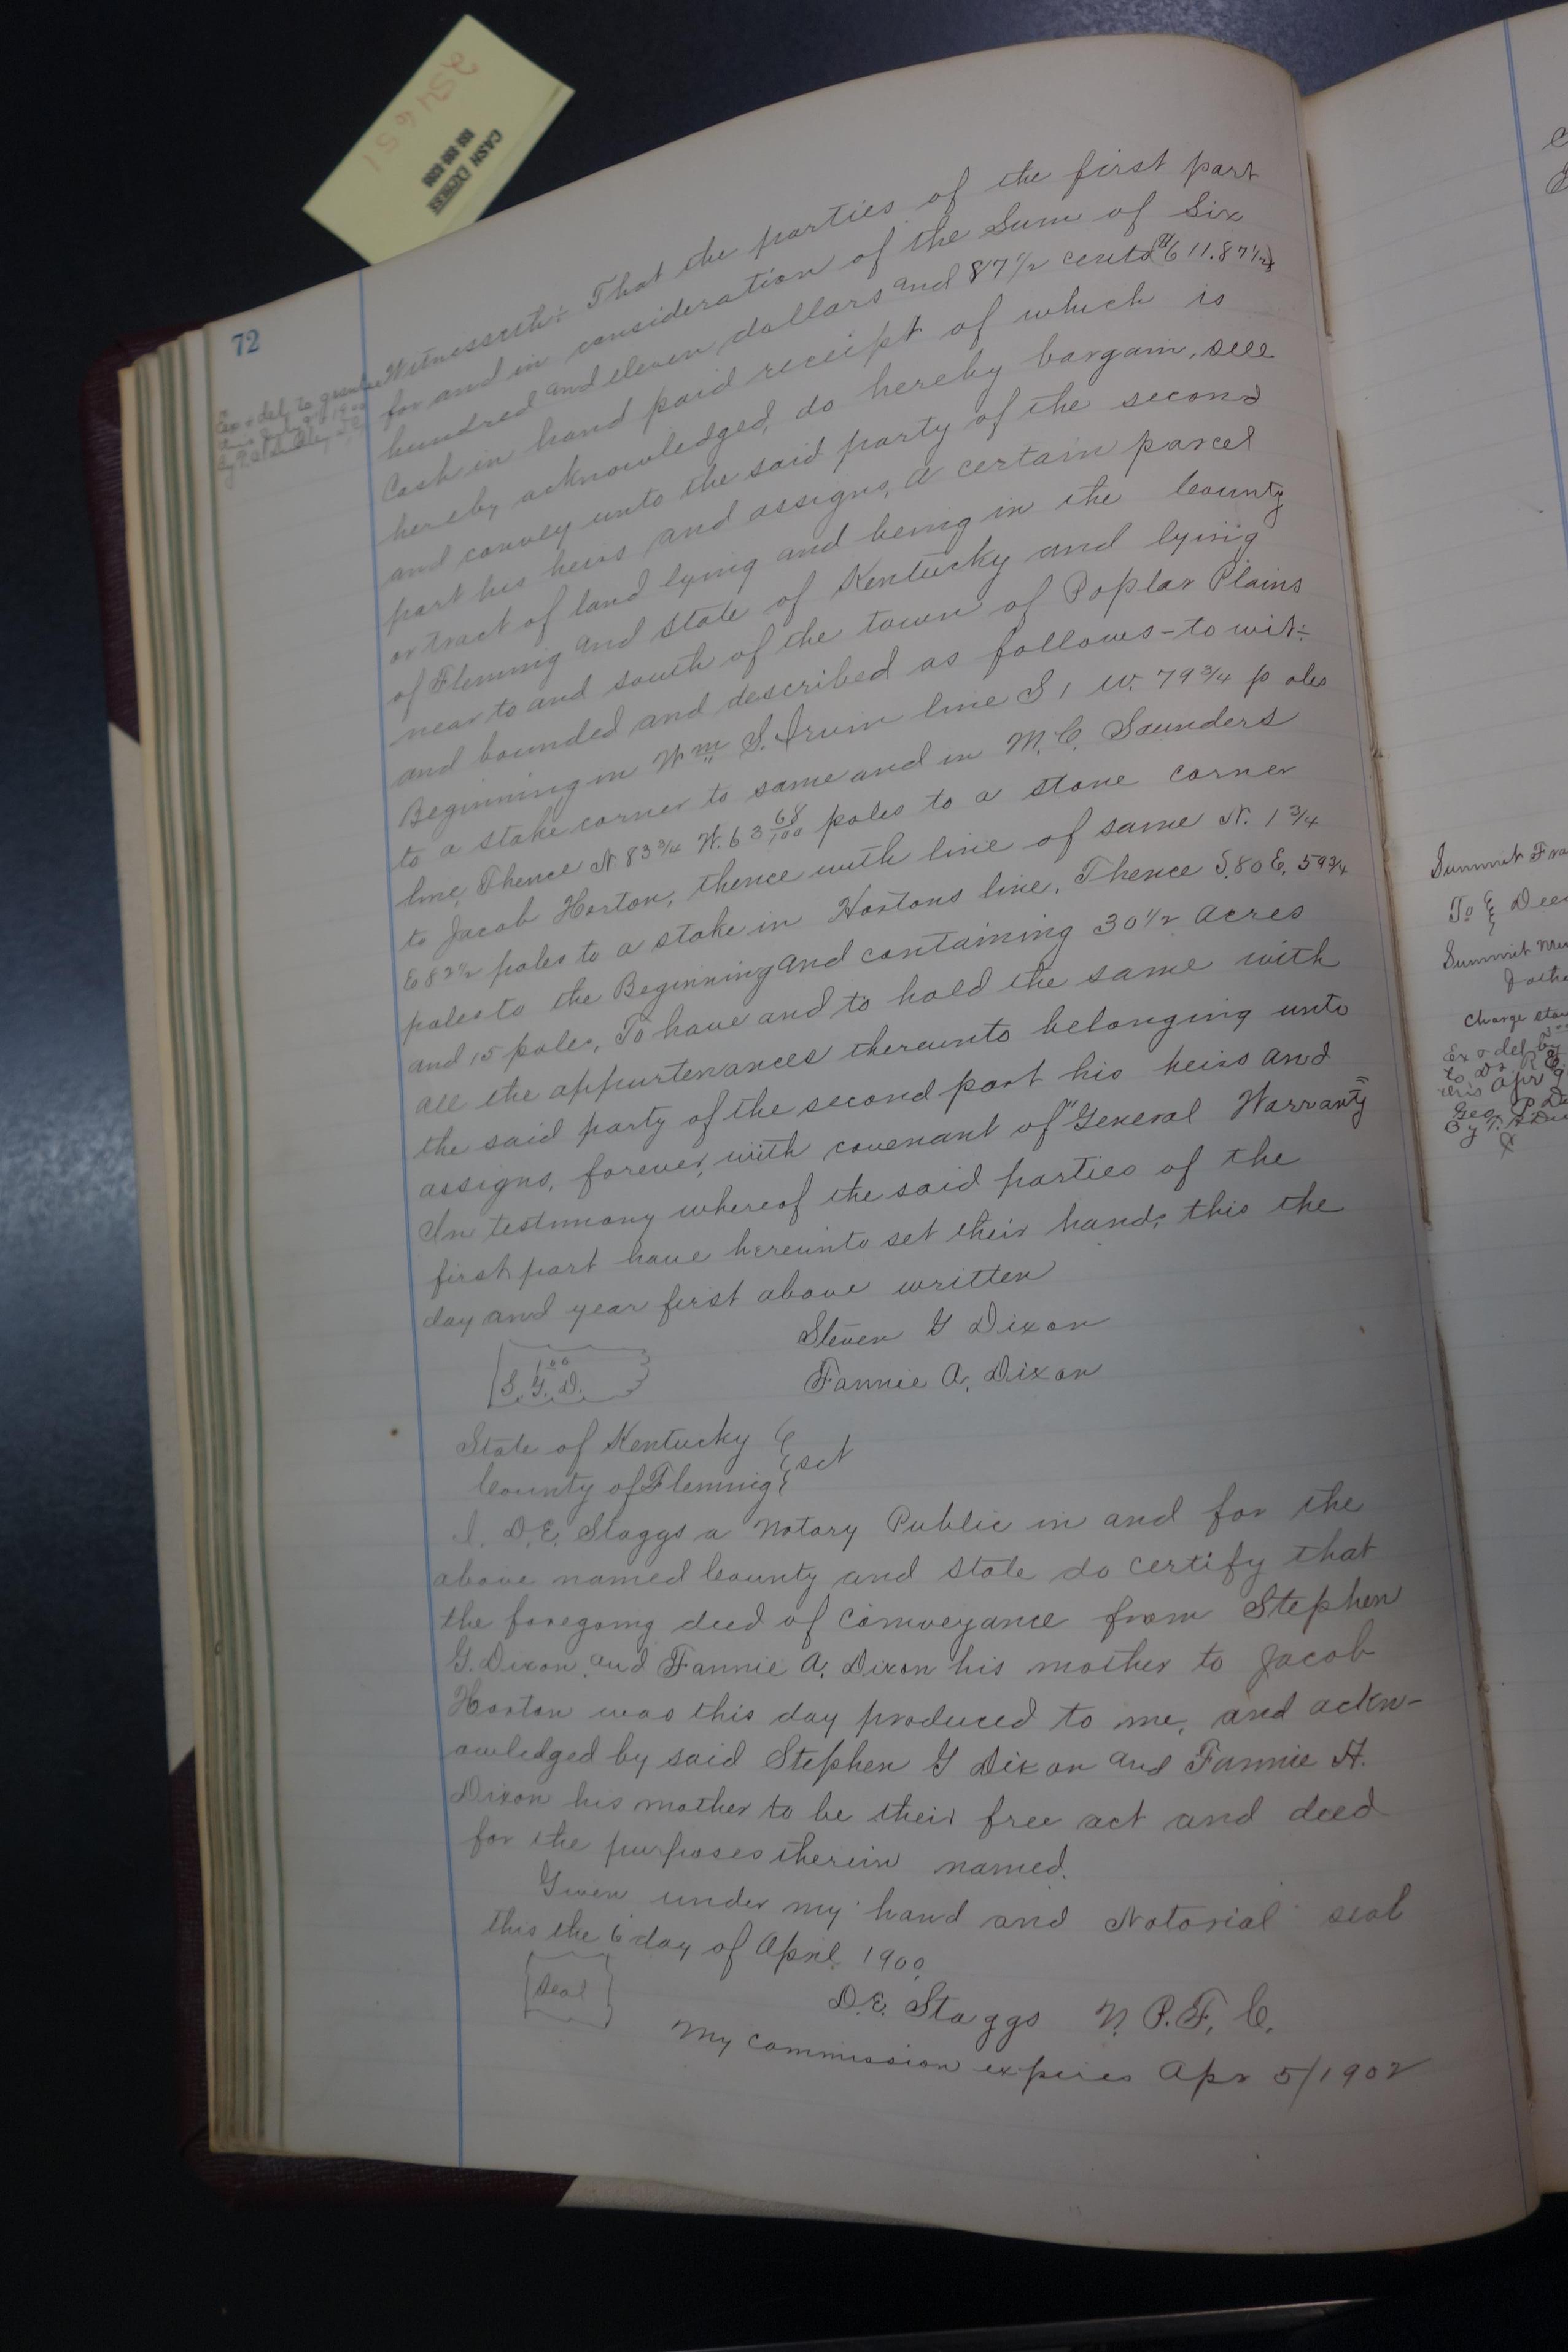 254651
CASH EXPRESS
72
Ex & del. to grantee
this July 9th 1900
Witnesseth: That the parties of the first part
for and in consideration of the Sum of Six
hundred and eleven dollars and 87 1/2 cents ($611.87 1/2)
Cash in hand paid receipt of which is
hereby acknowledged, do hereby bargain, sell
and convey unto the said party of the second
part his heirs and assigns, a certain parcel
or tract of land lying and being in the County
of Fleming and State of Kentucky and lying
near to and south of the town of Poplar Plains
and bounded and described as follows-to wit:-
Beginning in Wm S. Irvin line S 1 W. 79 3/4 poles
to a stake corner to same and in M. C. Saunders
line, Thence N. 83 3/4 W. 63 68/100 poles to a stone corner
to Jacob Horton, thence with line of same N. 1 3/4
E 82 1/2 poles to a stake in Hortons line. Thence S. 80 E. 59 3/4
poles to the Beginning and containing 30 1/2 acres
and 15 poles, To have and to hold the same with
all the appurtenances thereunto belonging unto
the said party of the second part his heirs and
assigns, forever, with covenant of "General Warranty"
In testimony whereof the said parties of the
first part have hereunto set their hands this the
day and year first above written
Steven G Dixon
1 00
S. G. D.
Fannie A. Dixon
State of Kentucky
County of Fleming } sct
I. D. E. Staggs a Notary Public in and for the
above named County and State do certify that
the foregoing deed of Conveyance from Stephen
G. Dixon and Fannie A. Dixon his mother to Jacob
Horton was this day produced to me, and ackn-
owledged by said Stephen G Dixon and Fannie A.
Dixon his mother to be their free act and deed
for the purposes therein named.
Given under my hand and Notorial seal
this the 6 day of April 1900
Seal
D. E. Staggs N. P. F. C.
My commission expires Apr 5/1902
Summit
To } Deed
Summit
Charge
Ex & del by
to Dr. R E
this Apr 9
Geo. P.
By T.